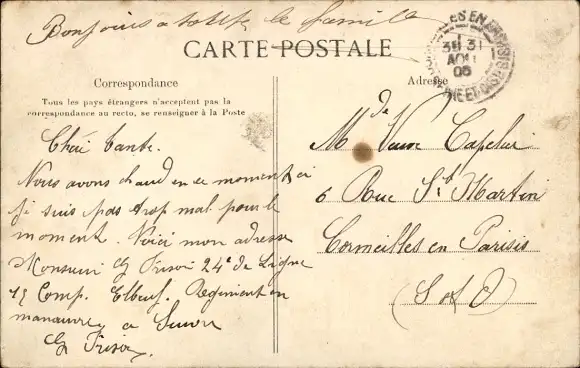 Bonjours a toute le famille
CARTE POSTALE
Correspondance
Tous les pays étrangers n'acceptent pas la
correspondance au recto, se renseigner à la Poste
Adresse
CORMEILLES EN PARISIS
31
AOUT
05
SEINE ET OISE
Chère tante.
Nous avons chaud en ce moment ci
je suis pas trop mal pour le
moment. Voici mon adresse
Monsieur G 24e de Ligne
Comp. Elbeuf. Regiment en
manœuvre a Suivre
G
Mde Veuve
6 Rue St Martin
Cormeilles en Parisis
(S & O)